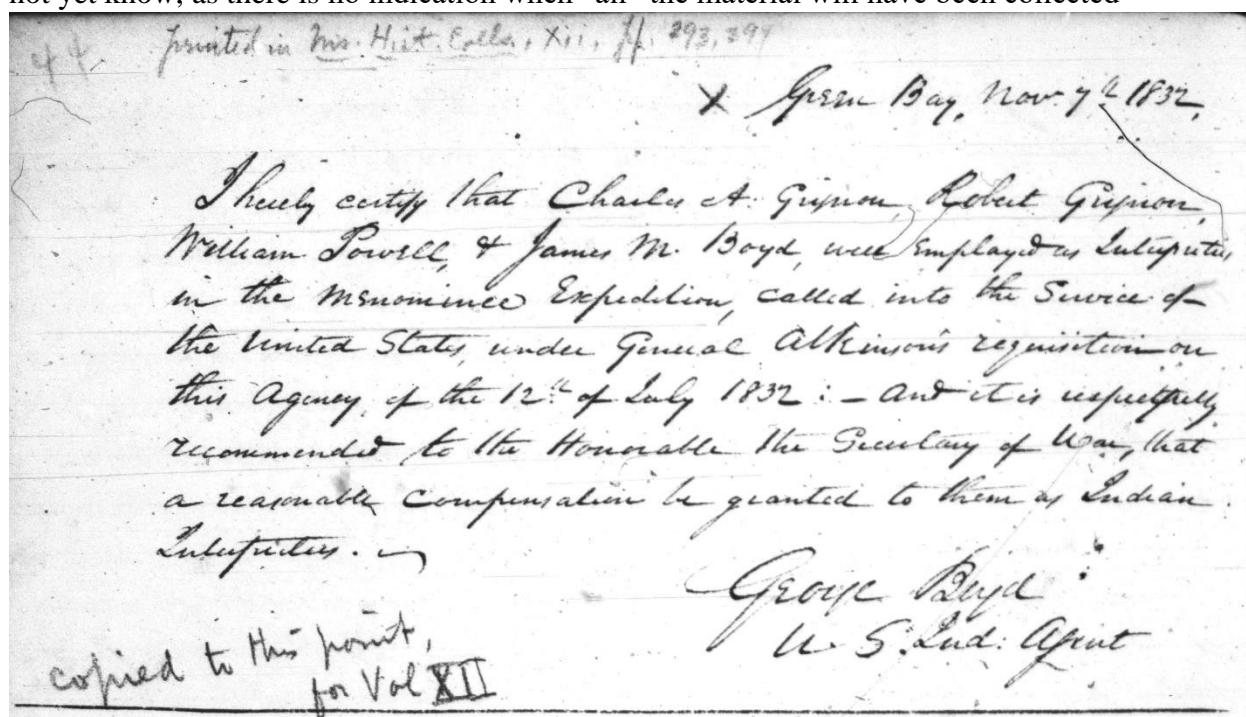 not yet know, as there is no indication when "all" the material will have been collected
44.
printed in Wis. Hist. Colls., XII, pp. 293, 294
X Green Bay, Nov. 7th 1832,
I hereby certify that Charles A. Grignon, Robert Grignon,
William Powell, & James M. Boyd, were employed as Interpreters
in the Menominee Expedition, called into the Service of
the United States, under General Atkinson's requisition on
this Agency, of the 12th of July 1832 : – and it is respectfully
recommended to the Honorable the Secretary of War, that
a reasonable compensation be granted to them as Indian
Interpreters. –
George Boyd
U. S. Ind: Agent
copied to this point,
for Vol XII